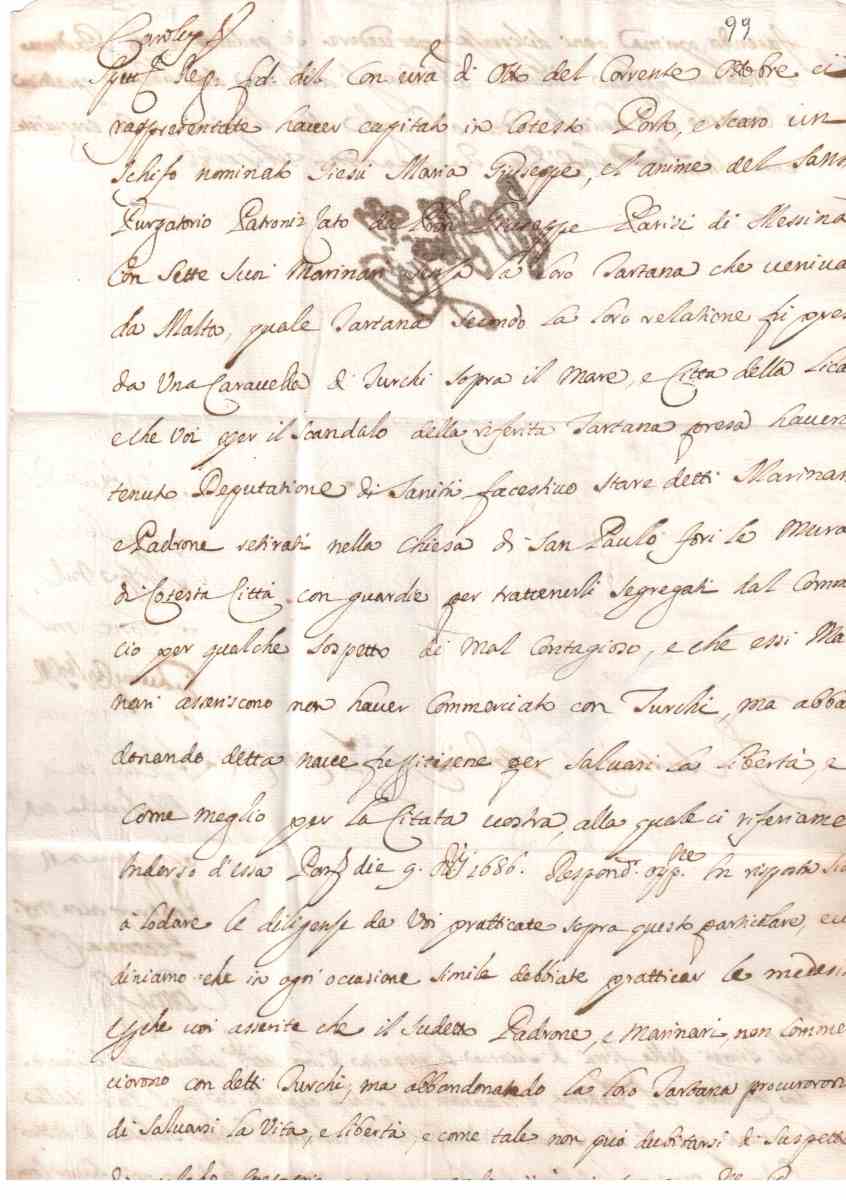 99
Carolus
Spett. Reg. fid. dil. Con vrã di Otto del Corrente Ottobre ci
rappresentate haver capitato in Cotesto Porto, e Scaro un
Schifo nominato Giesù Maria Giuseppe, e l'anime del Santo
Purgatorio Patronizzato da Giuseppe Parisi di Messina
Con Sette Suoi Marinari senza la loro Tartana che veniva
da Malta, quale Tartana secondo la loro relatione fù presa
da Una Caravella di Turchi sopra il mare, e Città della Licata
e che Voi per il scandalo della riferita Tartana presa havere
tenuto Deputatione di Sanità facestivo stare detti Marinari
e Padrone retirati nella Chiesa di San Paulo fori le Mura
di Cotesta Città con guardie per trattenerli segregati dal Comer
cio per qualche sospetto di mal Contagioso, e che essi Mari
nari asseriscono non haver Commerciato con Turchi, ma abban
donando detta nave per salvarsi la libertà, e
Come meglio per la Citata vostra, alla quale ci riferiamo
Inderso d'essa die 9. 1686. Respond. In risposta
à lodare le diligense da Voi pratticate sopra questo particulare, e
diniamo che in ogni occasione simile debbiate pratticar le medesi
che voi asserite che il Sudetto Padrone, e marinari non Comme
ciorono con detti Turchi, ma abbandonatedo la loro Tartana procurorono
di Salvarsi la Vita, e libertà, e come tale non può dubitarsi di Suspetto